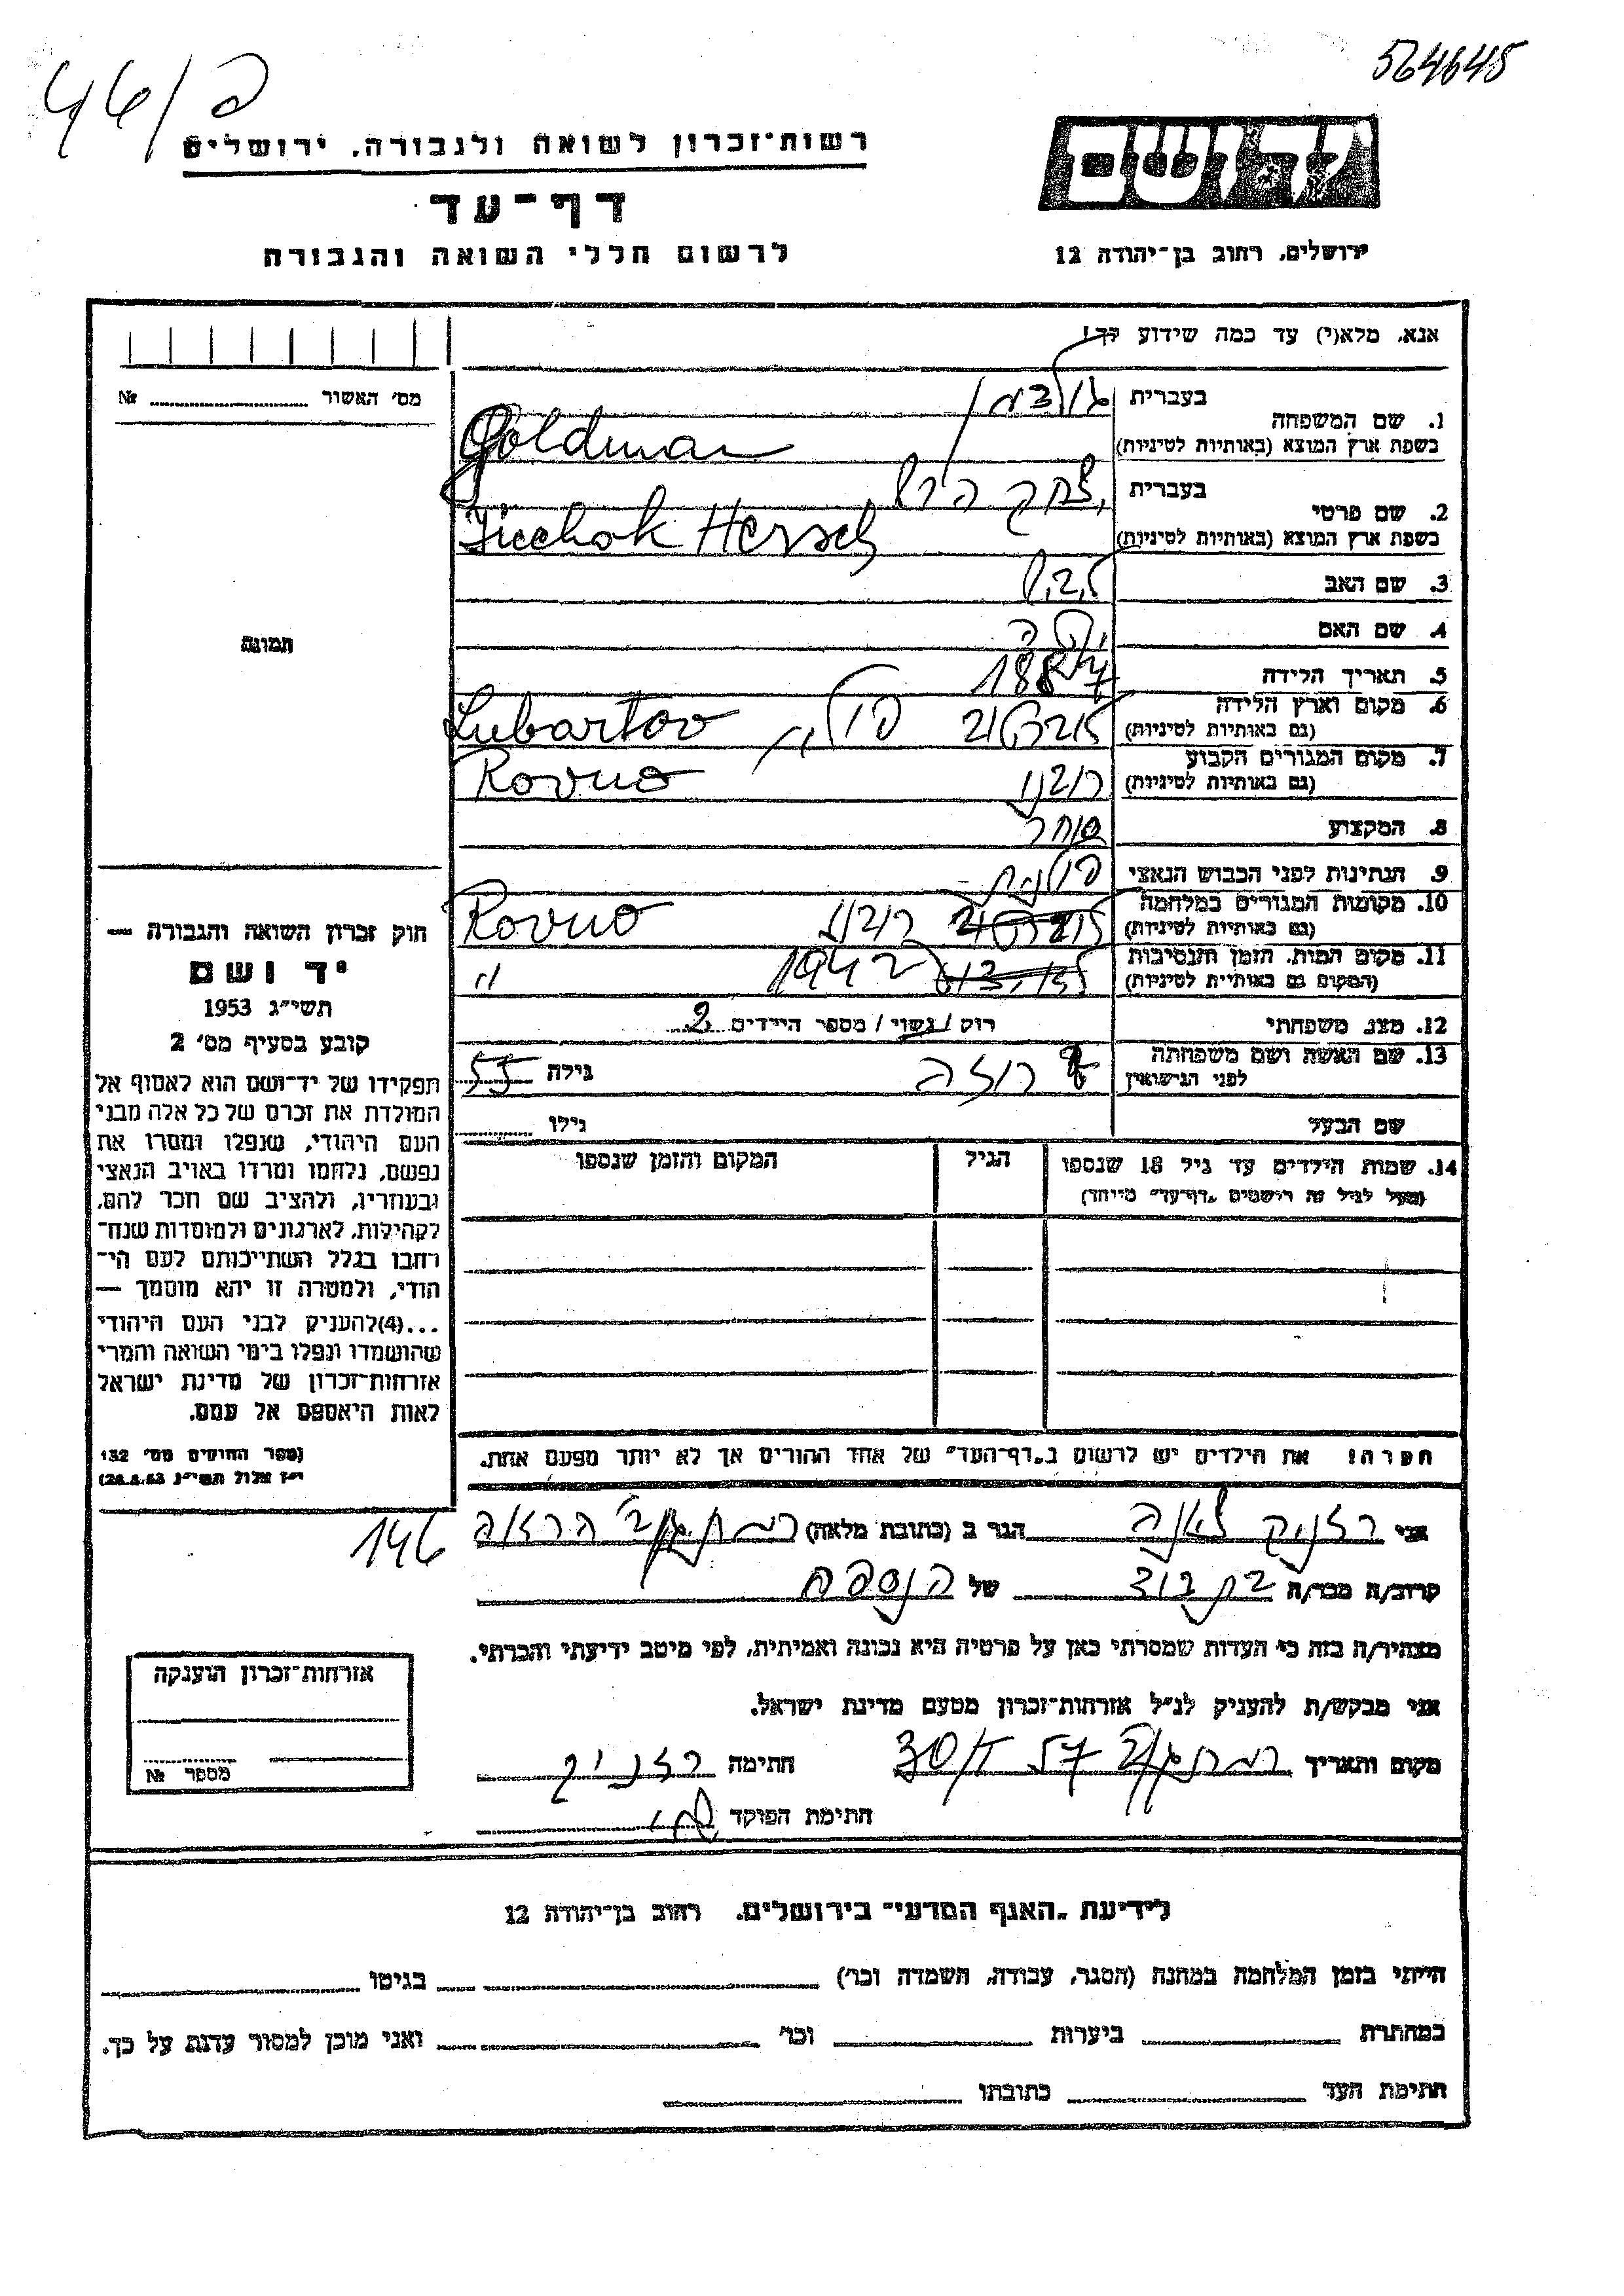 564645
46/פ
רשות־זכרון לשואה ולגבורה, ירושלים
יד ושם
דף־עד
לרשום חללי השואה והגבורה
ירושלים, רחוב בן־יהודה 12
אנא, מלא(י) עד כמה שידוע לך!
מס׳ האשור № 
1. שם המשפחה
בעברית גולדמן
בשפת ארץ המוצא (באותיות לטיניות) Goldman
2. שם פרטי
בעברית יצחק הרש
בשפת ארץ המוצא (באותיות לטיניות) Jicchok Hersch
3. שם האב ליב
4. שם האם
5. תאריך הלידה 1887
6. מקום וארץ הלידה
(גם באותיות לטיניות) לוברטוב פולין Lubartov
7. מקום המגורים הקבוע
(גם באותיות לטיניות) רובנו Rovno
8. המקצוע סוחר
9. הנתינות לפני הכבוש הנאצי פולנית
10. מקומות המגורים במלחמה
(גם באותיות לטיניות) רובנו Rovno
11. מקום המות, הזמן והנסיבות
(המקום גם באותיות לטיניות) 1942 "
12. מצב משפחתי רוק / נשוי / מספר הילדים 2
13. שם האשה ושם משפחתה
לפני הנישואין רוזה גילה 55
שם הבעל גילו
14. שמות הילדים עד גיל 18 שנספו הגיל המקום והזמן שנספו
(מעל לגיל זה רושמים „דף־עד״ מיוחד)
הערה: את הילדים יש לרשום ב„דף־העד״ של אחד ההורים אך לא יותר מפעם אחת.
תמונה
חוק זכרון השואה והגבורה —
יד ושם
תשי״ג 1953
קובע בסעיף מס׳ 2
תפקידו של יד־ושם הוא לאסוף אל
המולדת את זכרם של כל אלה מבני
העם היהודי, שנפלו ומסרו את
נפשם, נלחמו ומרדו באויב הנאצי
ובעוזריו, ולהציב שם וזכר להם,
לקהילות, לארגונים ולמוסדות שנח־
רבו בגלל השתייכותם לעם הי־
הודי, ולמטרה זו יהא מוסמך —
...(4)להעניק לבני העם היהודי
שהושמדו ונפלו בימי השואה והמרי
אזרחות־זכרון של מדינת ישראל
לאות היאספם אל עמם.
(ספר החוקים מס׳ 132
י״ז אלול תשי״ג 28.8.53)
146
אני רזניק לאה הגר ב (כתובת מלאה) רמת גן הרואה
קרוב/ה מכר/ה בת דוד של הנספה
מצהיר/ה בזה כי העדות שמסרתי כאן על פרטיה היא נכונה ואמיתית, לפי מיטב ידיעתי והכרתי.
אני מבקש/ת להעניק לנ״ל אזרחות־זכרון מטעם מדינת ישראל.
מקום ותאריך רמת גן 57 חתימה רזניק
חתימת הפוקד
אזרחות־זכרון הוענקה
מספר №
לידיעת „האגף המדעי״ בירושלים, רחוב בן־יהודה 12
הייתי בזמן המלחמה במחנה (הסגר, עבודה, השמדה וכו׳) בגיטו
במחתרת ביערות וכו׳ ואני מוכן למסור עדות על כך.
חתימת העד כתובתו